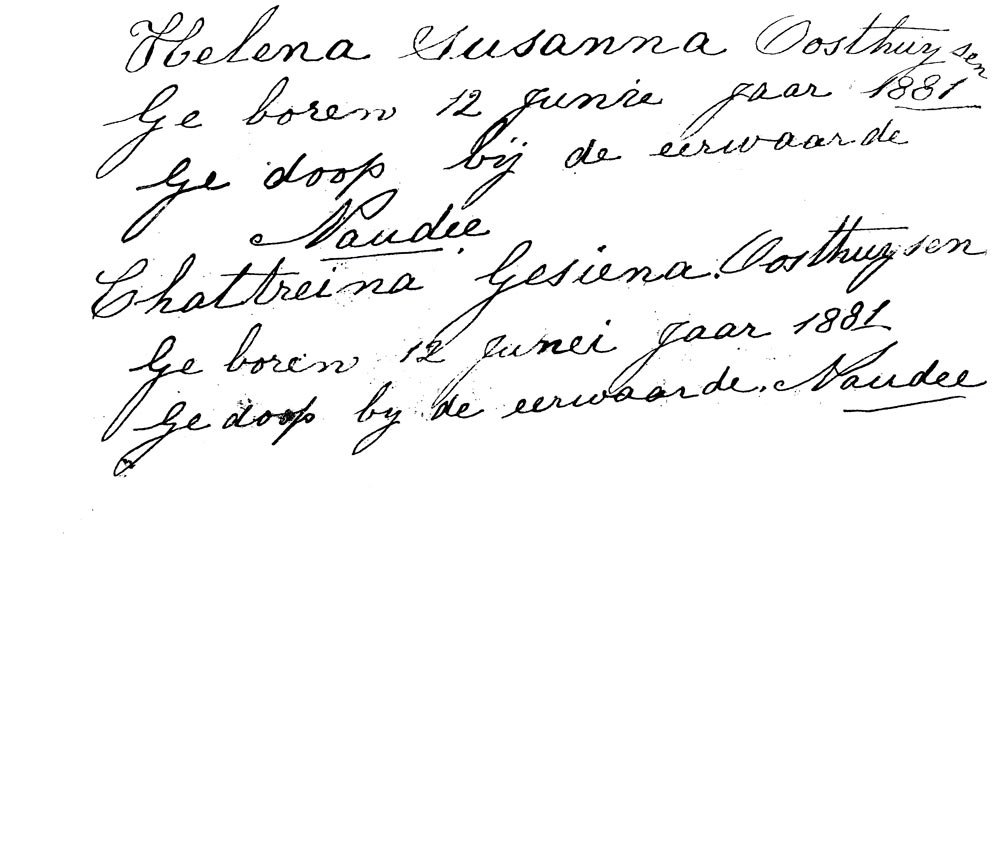 Helena Susanna Oosthuysen
Ge boren 12 Junie Jaar 1881
Ge doop bij de eerwaarde
Naudee
Chattreina Gesiena Oosthuysen
Ge boren 12 Junei Jaar 1881
Ge doop by de eerwaarde. Naudee